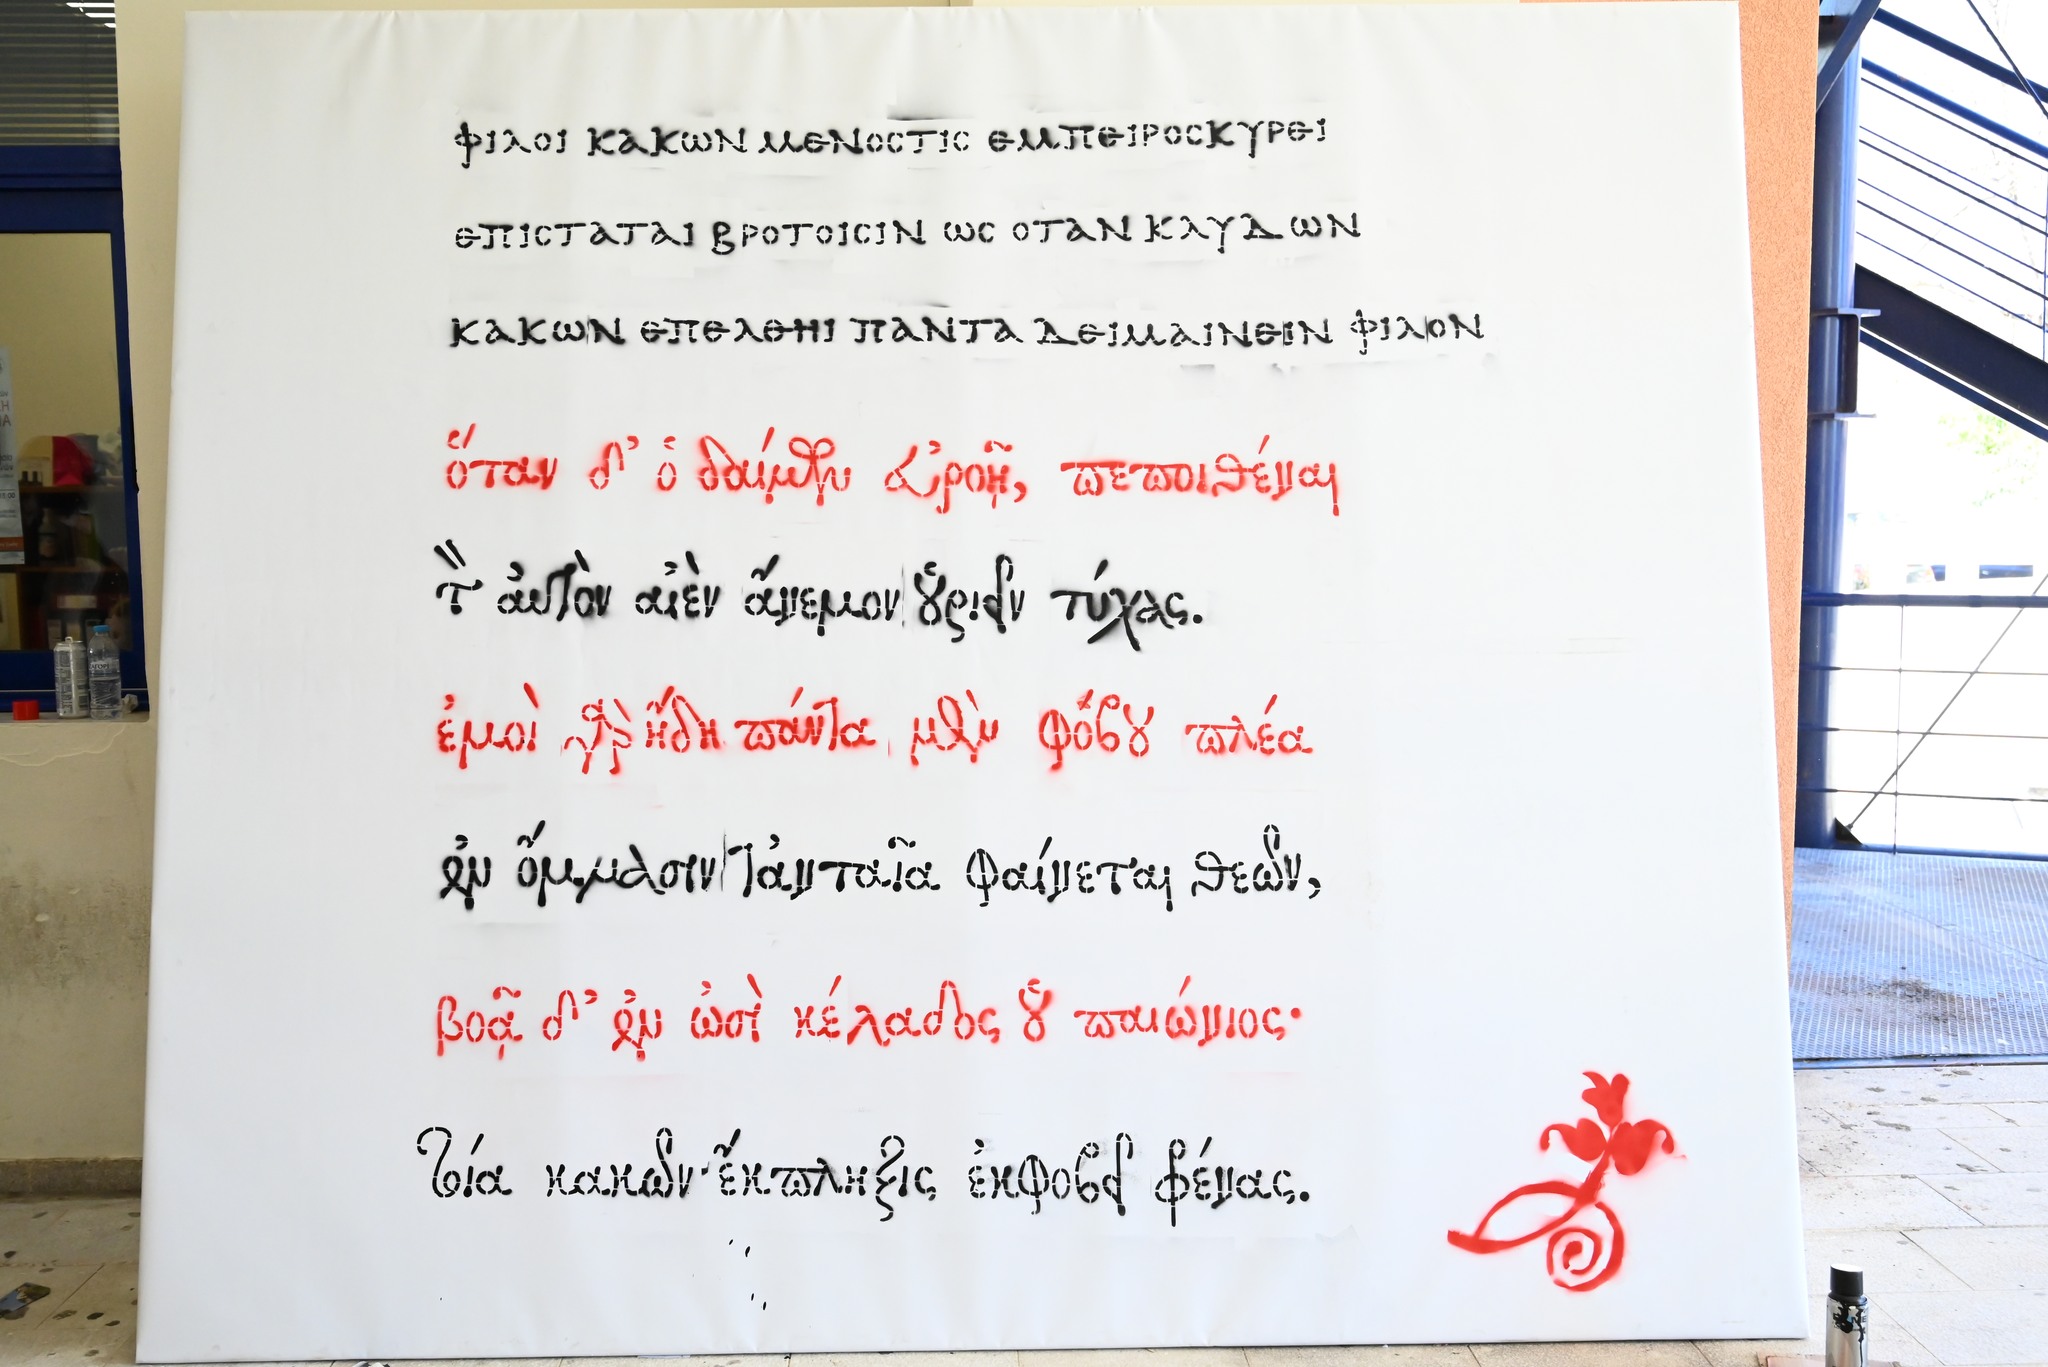 ΦΙΛΟΙ ΚΑΚΩΝ ΜΕΝΟϹΤΙϹ ΕΜΠΕΙΡΟϹΚΥΡΕΙ
ΕΠΙϹΤΑΤΑΙ ΒΡΟΤΟΙϹΙΝ ΩϹ ΟΤΑΝ ΚΛΥΔΩΝ
ΚΑΚΩΝ ΕΠΕΛΘΗΙ ΠΑΝΤΑ ΔΕΙΜΑΙΝΕΙΝ ΦΙΛΟΝ
ὅταν δ' ὁ δαίμων εὐροῇ, πεποιθέναι
τὸν αὐτὸν αἰὲν ἄνεμον οὐριεῖν τύχας.
ἐμοὶ γὰρ ἤδη πάντα μὲν φόβου πλέα
ἐν ὄμμασιν τἀνταῖα φαίνεται θεῶν,
βοᾷ δ' ἐν ὠσὶ κέλαδος οὐ παιώνιος·
τοία κακῶν ἔκπληξις ἐκφοβεῖ φρένας.